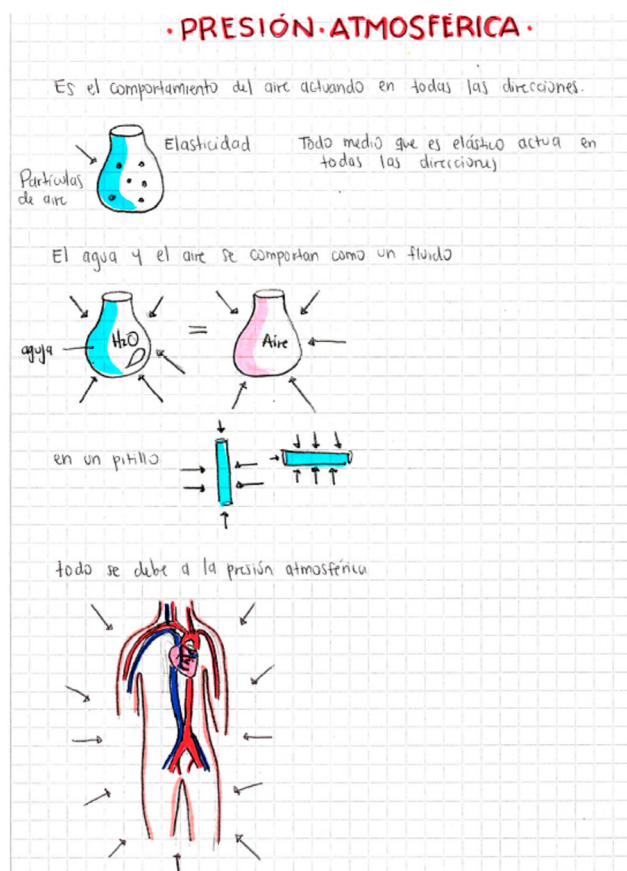 · PRESIÓN · ATMOSFÉRICA ·
Es el comportamiento del aire actuando en todas las direcciones.
Elasticidad
Todo medio que es elástico actua en
todas las direcciones
Partículas
de aire
El agua y el aire se comportan como un fluido
aguja
H2O
=
Aire
en un pitillo
todo se debe a la presión atmosférica